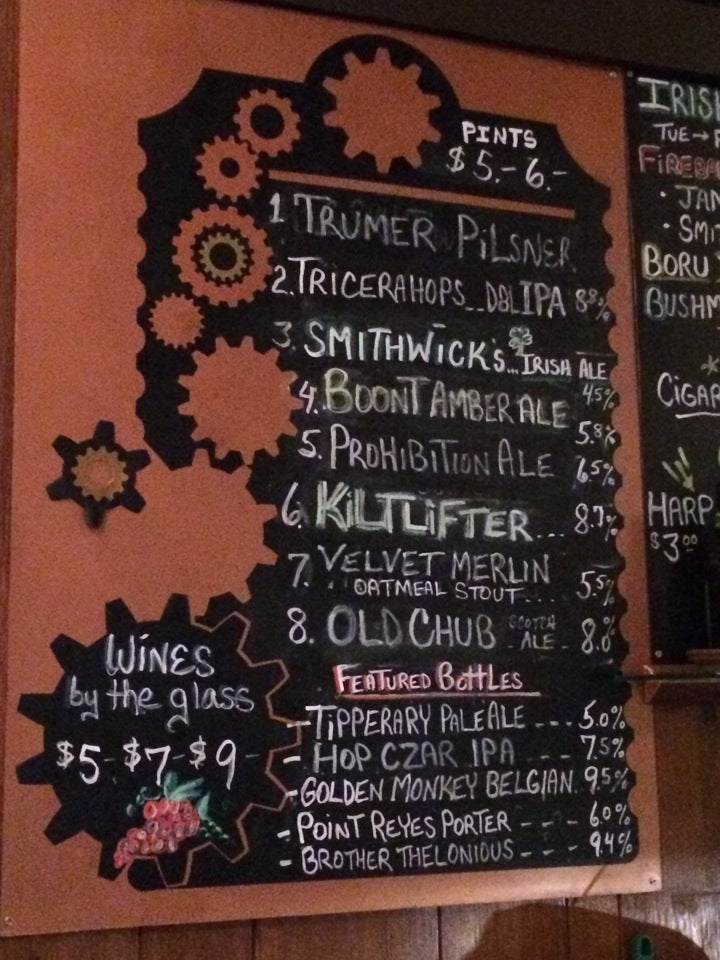 PINTS
$5.-6.-
1 TRUMER PiLSNER
2. TRICERAHOPS... DBL IPA 8.8%
3. SMiTHWiCK's... IRiSH ALE
4.5%
4. BOONT AMBER ALE
5.8%
5. PROHIBITION ALE
6.5%
6. KiLTLiFTER... 8.7%
7. VELVET MERLIN
OATMEAL STOUT.... 5.5%
8. OLD CHUB SCOTCH
ALE - 8.0%
FEATURED BottLES
- TiPPERARY PALE ALE --- 5.0%
- HOP CZAR IPA --- 7.5%
- GOLDEN MONKEY BELGIAN. 9.5%
- POINT REYES PORTER --- 6.0%
- BROTHER THELONIOUS --- 9.4%
WiNES
by the glass
$5-$7-$9-
IRIS
TUE →
FiREBA
• JAN
• SMi
BORU
BUSHM
CiGAR
HARP
$3.00